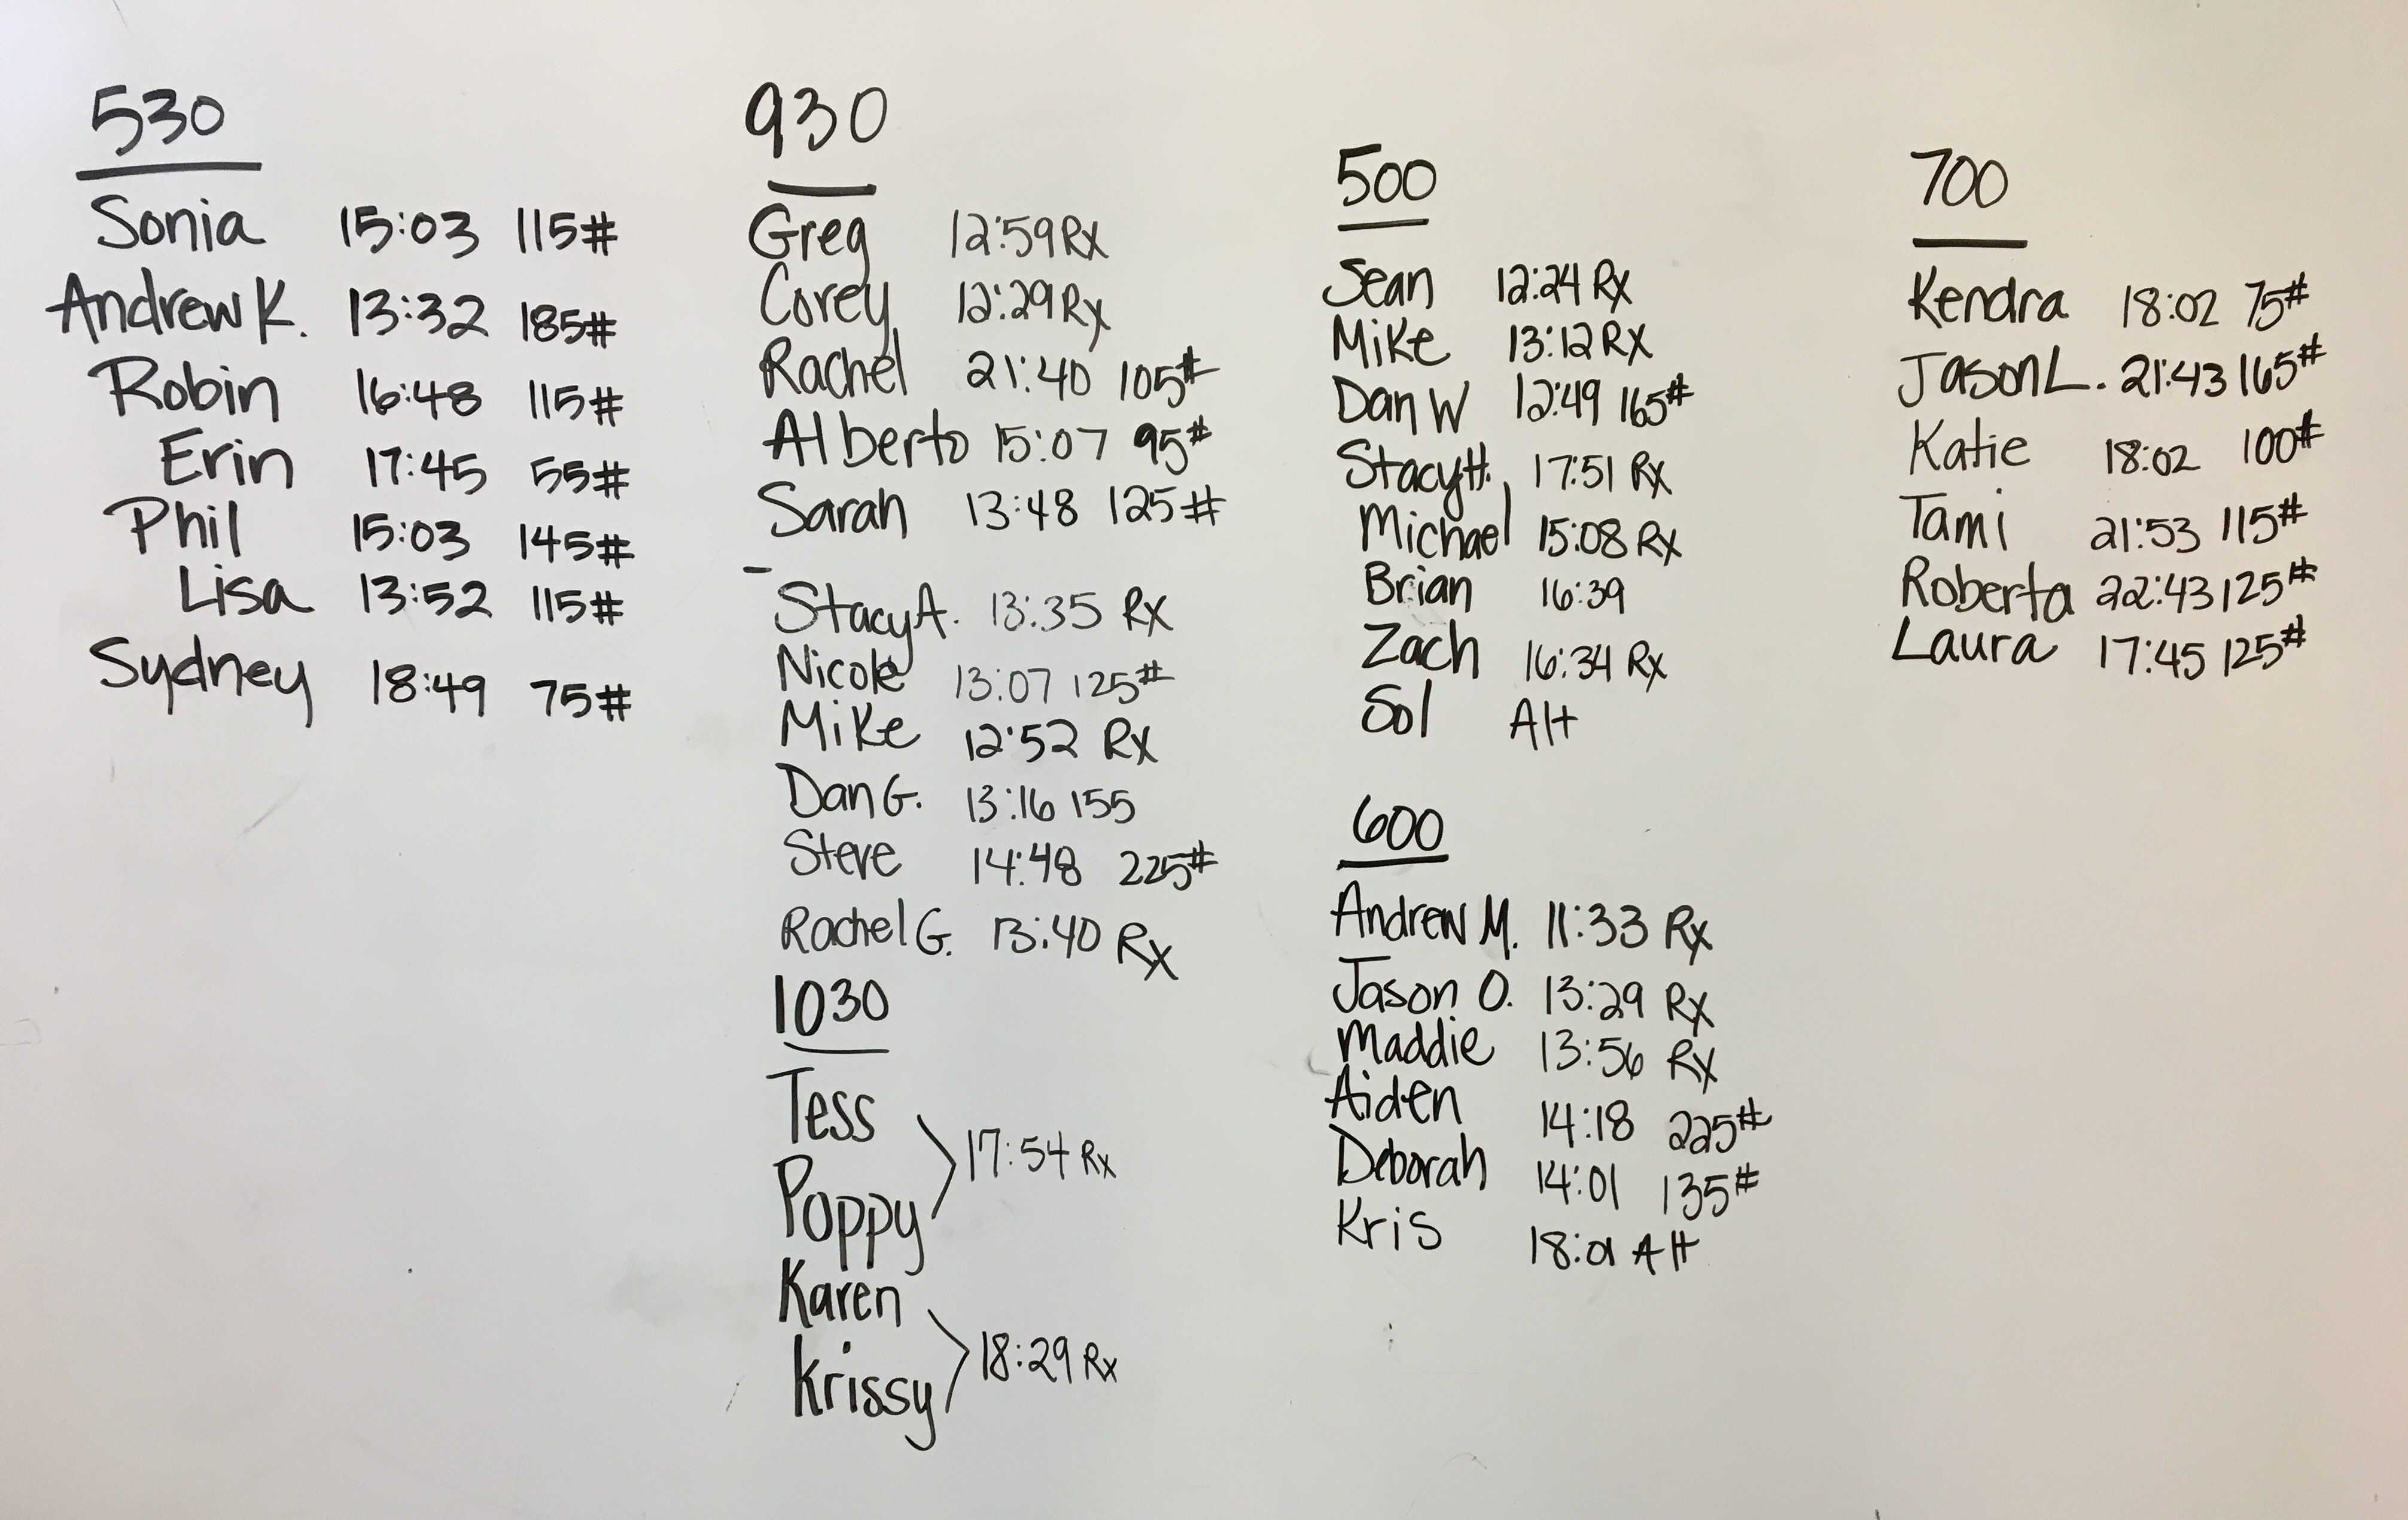 530
Sonia 15:03 115#
Andrew K. 13:32 185#
Robin 16:48 115#
Erin 17:45 55#
Phil 15:03 145#
Lisa 13:52 115#
Sydney 18:49 75#
930
Greg 12:59 Rx
Corey 12:29 Rx
Rachel 21:40 105#
Alberto 15:07 95#
Sarah 13:48 125#
Stacy A. 13:35 Rx
Nicole 13:07 125#
Mike 12:52 Rx
Dan G. 13:16 155
Steve 14:48 225#
Rachel G. 13:40 Rx
1030
Tess
Poppy
17:54 Rx
Karen
Krissy
18:29 Rx
500
Sean 12:24 Rx
Mike 13:12 Rx
Dan W 12:49 165#
Stacy H. 17:51 Rx
Michael 15:08 Rx
Brian 16:39
Zach 16:34 Rx
Sol Alt
600
Andrew M. 11:33 Rx
Jason O. 13:29 Rx
Maddie 13:56 Rx
Aiden 14:18 225#
Deborah 14:01 135#
Kris 18:01 Alt
700
Kendra 18:02 75#
Jason L. 21:43 165#
Katie 18:02 100#
Tami 21:53 115#
Roberta 22:43 125#
Laura 17:45 125#